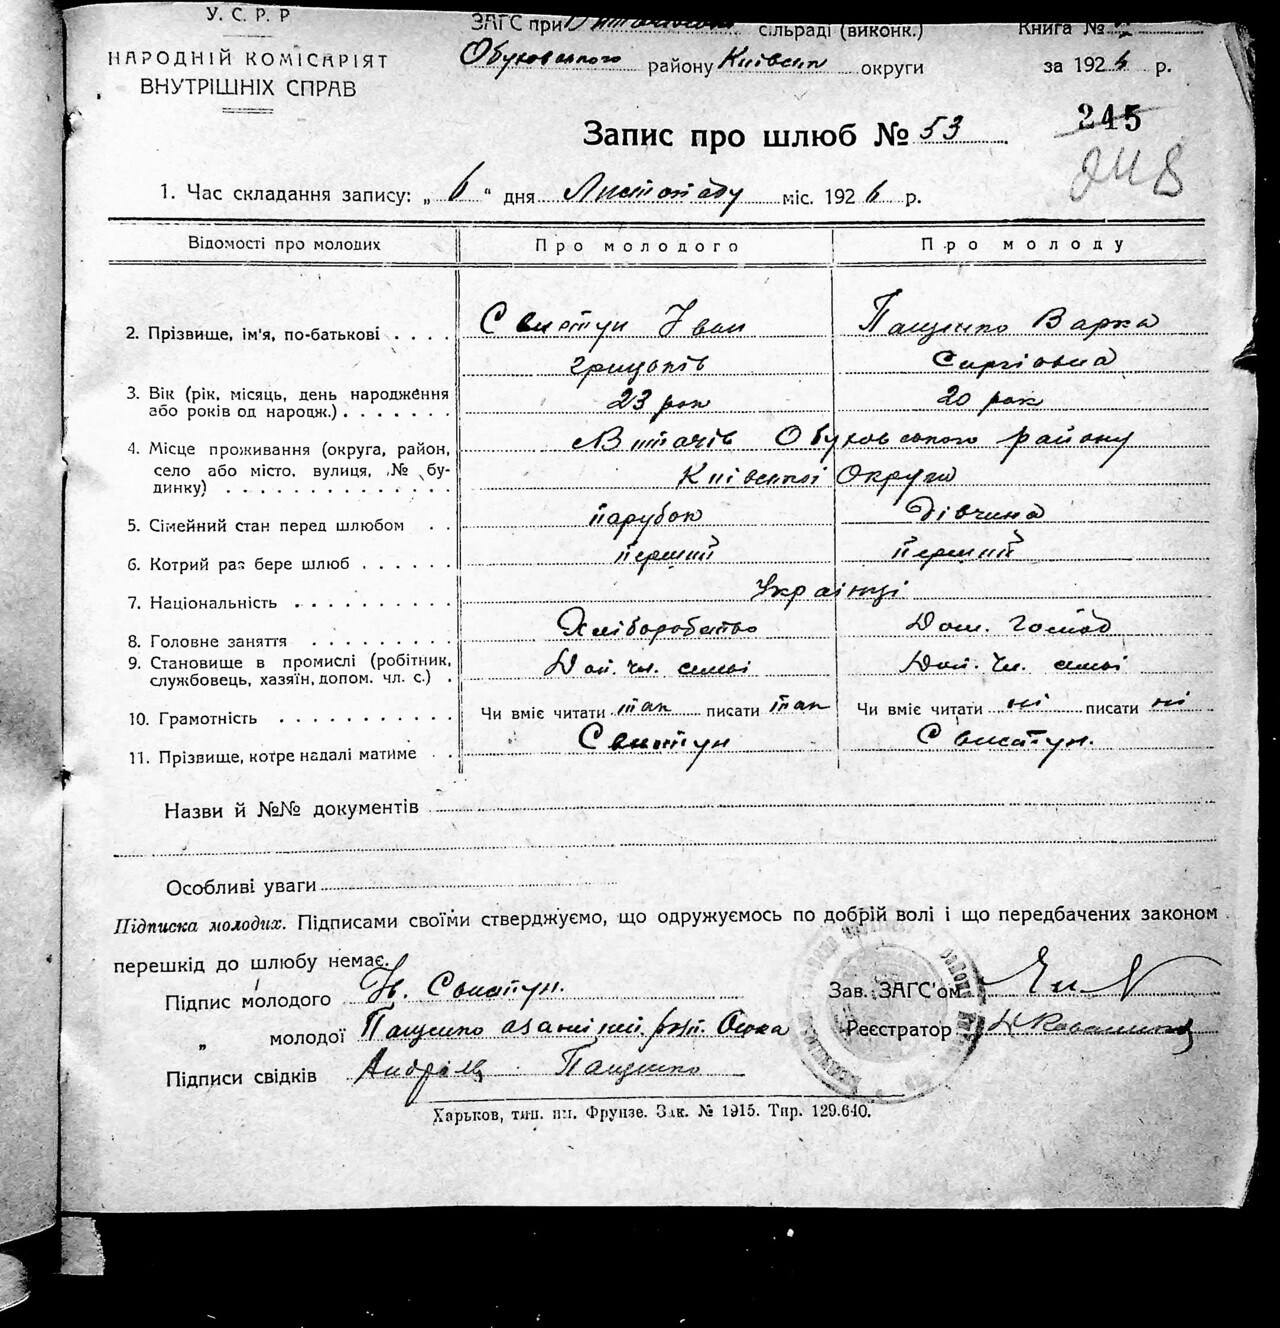 У. С. Р. Р
НАРОДНІЙ КОМІСАРІЯТ
ВНУТРІШНІХ СПРАВ
ЗАГС при сільраді (виконк.)
Обуховського району Київськ округи
Книга №
за 1926 р.
245
Запис про шлюб № 53
248
1. Час складання запису: „ 6 “ дня Листопаду міс. 1926 р.
Відомості про молодих Про молодого Про молоду
2. Прізвище, ім'я, по-батькові . . . . Свистун Іван Пащенко Варка
Грицьків Сиргіовна
3. Вік (рік, місяць, день народження 23 рок 20 рок
або років од народж.) . . . . . . .
4. Місце проживання (округа, район, Витачів Обуховського району
село або місто, вулиця, № бу- Київської Округи
динку) . . . . . . . . . . . . .
5. Сімейний стан перед шлюбом . . парубок дівчина
6. Котрий раз бере шлюб . . . . . . перший перший
7. Національність . . . . . . . . . . Українці
8. Головне заняття . . . . . . . . Хліборобство Дом. господ
9. Становище в промислі (робітник, Доп. чл. семьі Доп. чл. семьі
службовець, хазяїн, допом. чл. с.) .
10. Грамотність . . . . . . . . . . . Чи вміє читати так писати так Чи вміє читати ні писати ні
11. Прізвище, котре надалі матиме . . Свистун Свистун.
Назви й №№ документів
Особливі уваги
Підписка молодих. Підписами своїми стверджуємо, що одружуємось по добрій волі і що передбачених законом
перешкід до шлюбу немає.
Підпис молодого Ів. Свистун. Зав. ЗАГС'ом
„ молодої Пащенко Реєстратор
Підписи свідків Андрій Пащенко
Харьков, тип. им. Фрунзе. Зак. № 1915. Тир. 129.640.